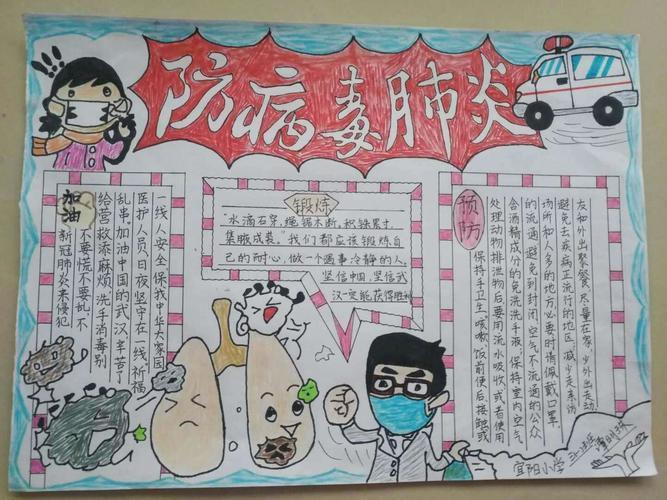 防病毒肺炎
加油
新冠肺炎来侵犯
不要慌不要乱,不
给营救添麻烦洗手消毒别
乱串加油中国的武汉辛苦了
医护人员日夜坚守在一线祈福
一线人安全保我中华大家园
锻炼
"水滴石穿,绳锯木断,积铁累寸,
集腋成裘。"我们都应该锻炼自
己的耐心,做一个遇事冷静的人。
坚信中国,坚信武
汉一定能获得胜利
预防
保持手卫生,咳嗽,饭前便后,接触或
处理动物排泄物后要用流水吸收,或者使用
含酒精成分的免洗洗手液,保持室内空气
的流通,避免到封闭空气不流通的公众
场所和人多的地方,必要时请佩戴口罩
避免去疾病正流行的地区,减少走亲访
友和外出聚餐,尽量在家,少外出走动.
宜阳小学